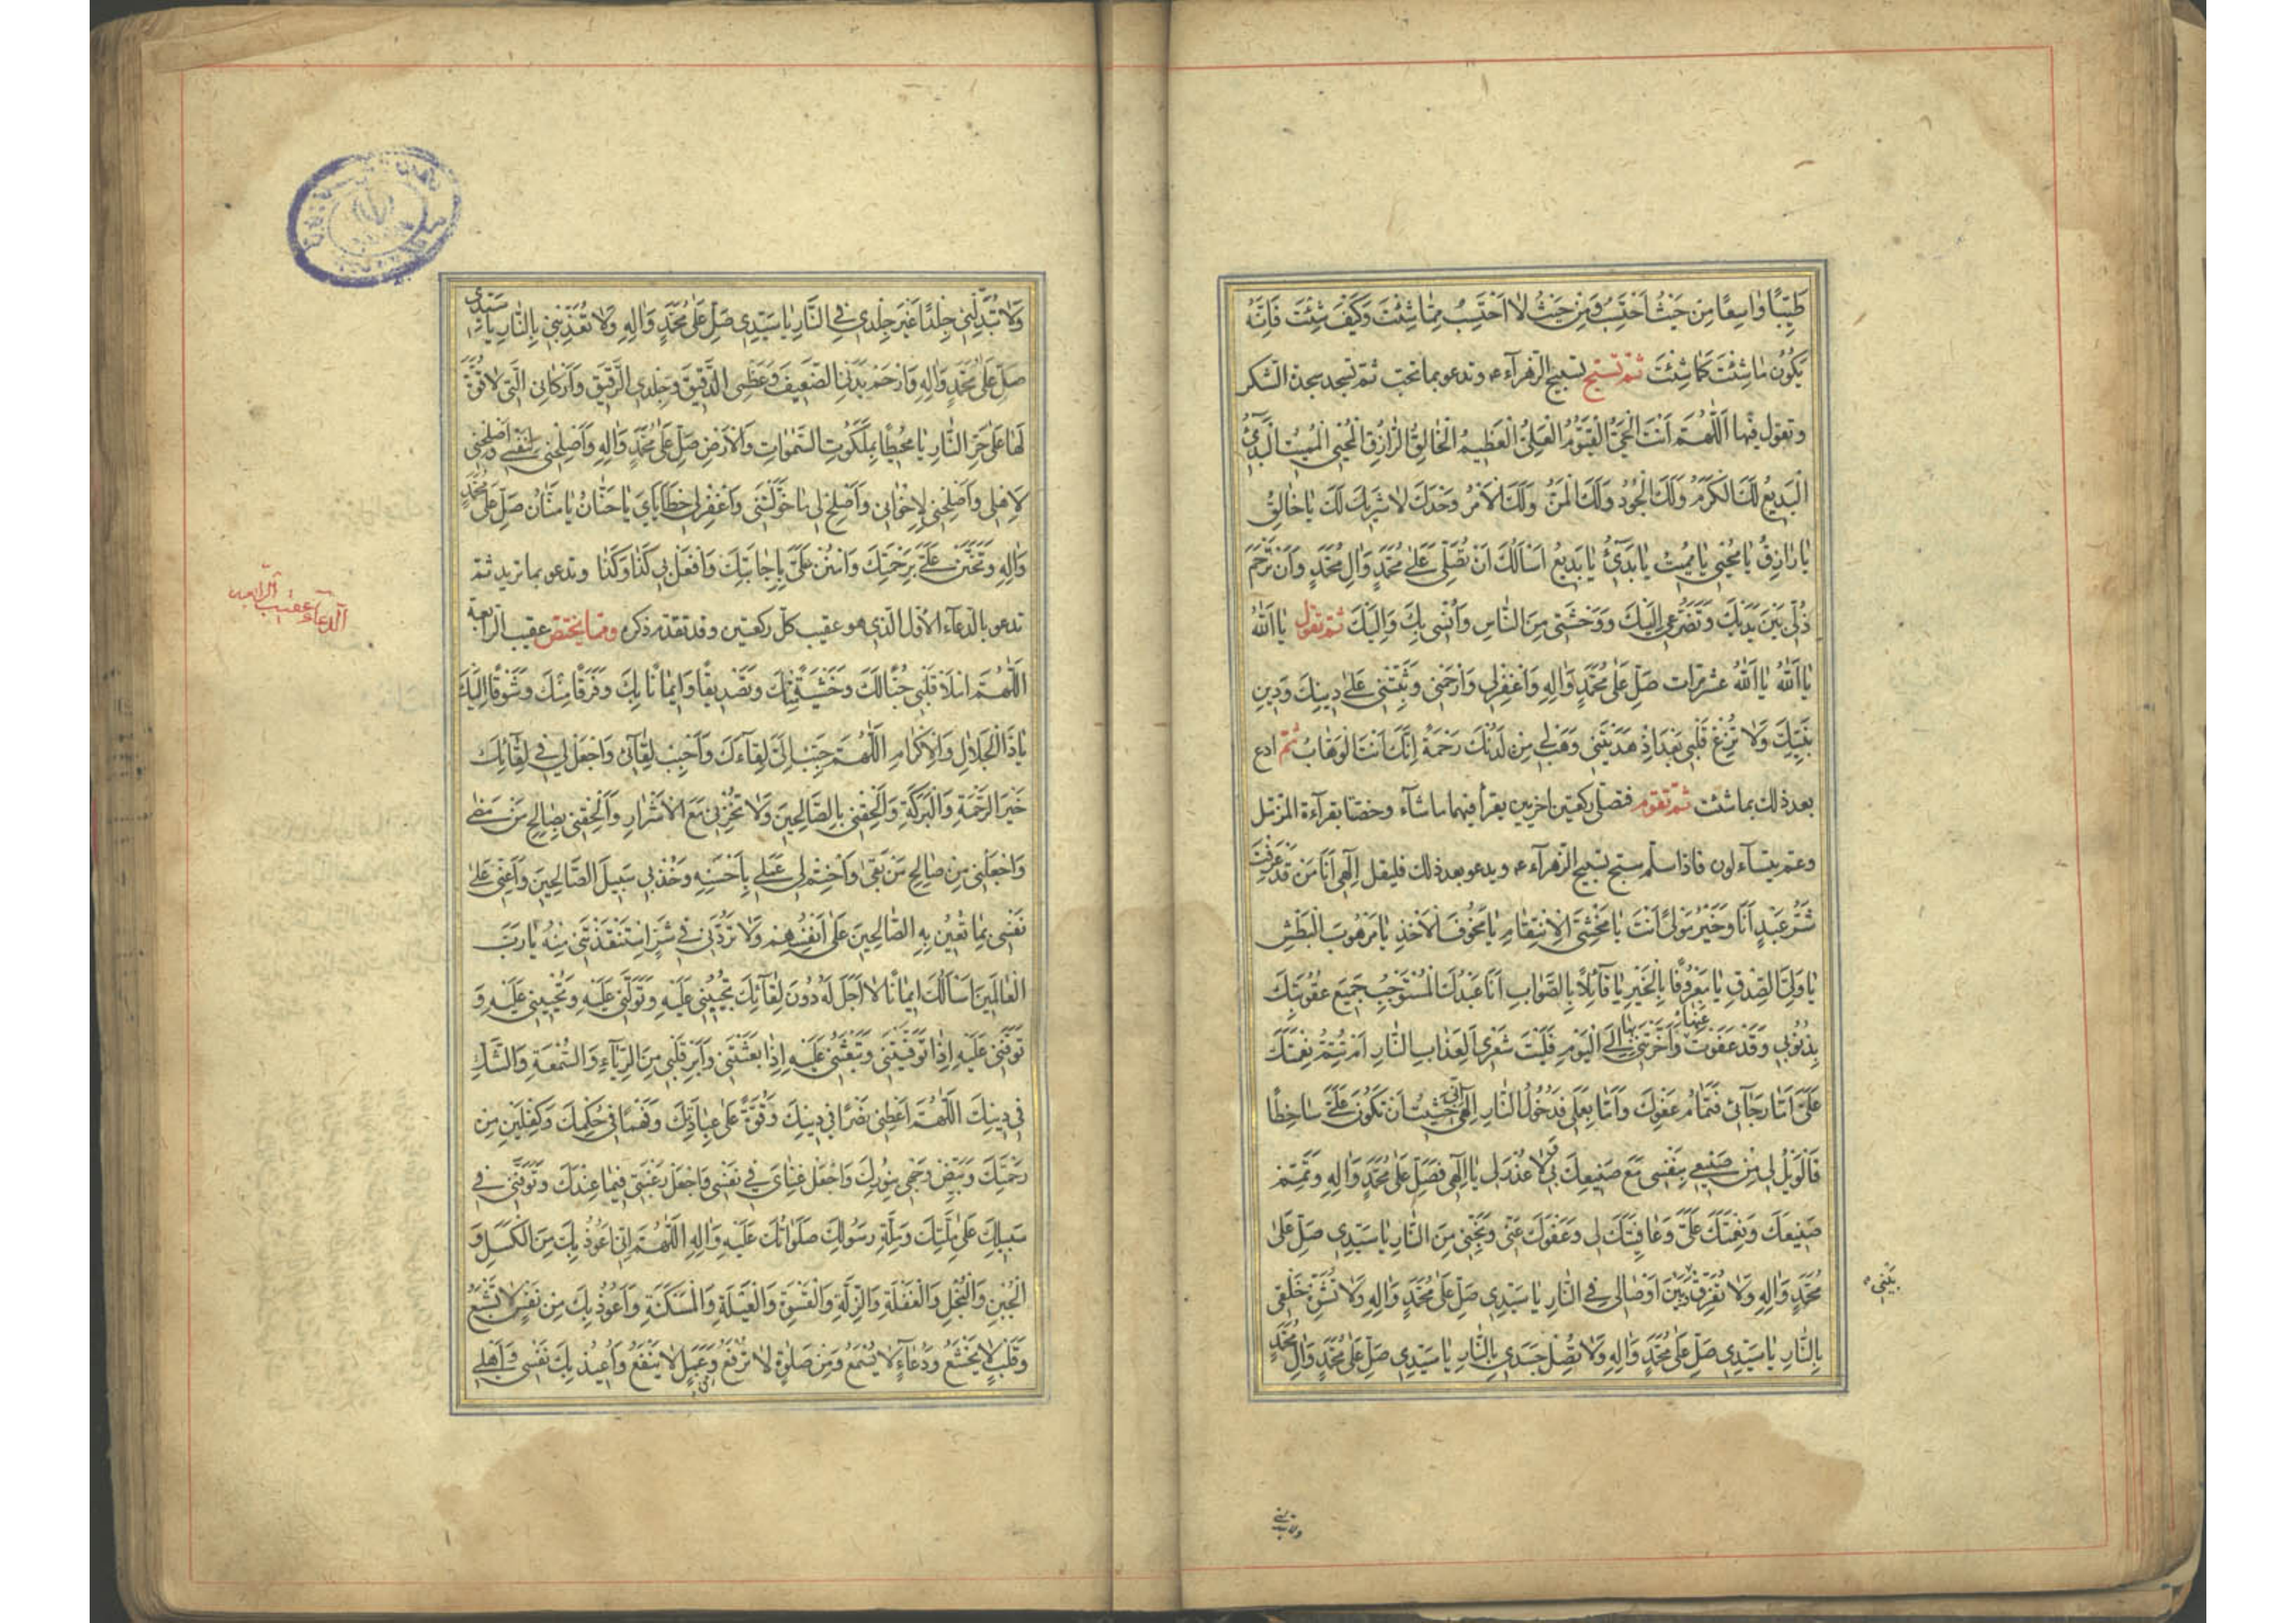 طَيِّبًا وَاسِعًا مِنْ حَيْثُ اَحْتَسِبُ وَمِنْ حَيْثُ لَا اَحْتَسِبُ مِمَّا شِئْتَ وَكَيْفَ شِئْتَ فَاِنَّهُ
يَكُونُ مَا شِئْتَ كَمَا شِئْتَ ثمّ تسبّح تسبيح الزهرآء ع وتدعو بما تحبّ ثمّ تسجد سجدة الشكر
وتقول فيها اَللّٰهُمَّ اَنْتَ الْحَيُّ الْقَيُّومُ الْعَلِيُّ الْعَظِيمُ الْخَالِقُ الرَّازِقُ الْمُحْيِي الْمُمِيتُ الْبَدِيٓءُ
الْبَدِيعُ لَكَ الْكَرَمُ وَلَكَ الْجُودُ وَلَكَ الْمَنُّ وَلَكَ الْاَمْرُ وَحْدَكَ لَا شَرِيكَ لَكَ يَا خَالِقُ
يَا رَازِقُ يَا مُحْيِي يَا مُمِيتُ يَا بَدِيٓءُ يَا بَدِيعُ اَسْاَلُكَ اَنْ تُصَلِّيَ عَلٰى مُحَمَّدٍ وَاٰلِ مُحَمَّدٍ وَاَنْ تَرْحَمَ
ذُلِّي بَيْنَ يَدَيْكَ وَتَضَرُّعِي اِلَيْكَ وَوَحْشَتِي مِنَ النَّاسِ وَاُنْسِي بِكَ وَاِلَيْكَ ثمّ تقول يَا اَللّٰهُ
يَا اَللّٰهُ يَا اَللّٰهُ عشر مرّات صَلِّ عَلٰى مُحَمَّدٍ وَاٰلِهِ وَاغْفِرْ لِي وَارْحَمْنِي وَثَبِّتْنِي عَلٰى دِينِكَ وَدِينِ
نَبِيِّكَ وَلَا تُزِغْ قَلْبِي بَعْدَ اِذْ هَدَيْتَنِي وَهَبْ لِي مِنْ لَدُنْكَ رَحْمَةً اِنَّكَ اَنْتَ الْوَهَّابُ ثمّ ادع
بعد ذلك بما شئت ثمّ تقوم فتصلّى ركعتين اخريين يقرأ فيهما ما شآء وخصّتا بقرآءة المزّمّل
وعمّ يتسآءلون فاذا سلّم سبّح تسبيح الزهرآء ع ويدعو بعد ذلك فليقل اِلٰهِي اَنَا مَنْ قَدْ عَرَفْتَ
شَرُّ عَبْدٍ اَنَا وَخَيْرُ مَوْلًى اَنْتَ يَا مَخْشِيَّ الْاِنْتِقَامِ يَا مَخُوفَ الْاَخْذِ يَا مَرْهُوبَ الْبَطْشِ
يَا وَلِيَّ الصِّدْقِ يَا مَعْرُوفًا بِالْخَيْرِ يَا قَآئِلًا بِالصَّوَابِ اَنَا عَبْدُكَ الْمُسْتَوْجِبُ جَمِيعَ عُقُوبَتِكَ
بِذُنُوبِي وَقَدْ عَفَوْتَ عَنْهَا وَاَخَّرْتَنِي بِهَا اِلَى الْيَوْمِ فَلَيْتَ شِعْرِي اَلِعَذَابِ النَّارِ اَمْ تُتِمُّ نِعْمَتَكَ
عَلَيَّ اَمَّا رَجَآئِي فَتَمَامُ عَفْوِكَ وَاَمَّا بِعَمَلِي فَدُخُولُ النَّارِ اِلٰهِي اِنِّي خَشِيتُ اَنْ تَكُونَ عَلَيَّ سَاخِطًا
فَالْوَيْلُ لِي مِنْ صَنِيعِي بِنَفْسِي مَعَ صَنِيعِكَ بِي لَا عُذْرَ لِي يَا اِلٰهِي فَصَلِّ عَلٰى مُحَمَّدٍ وَاٰلِهِ وَتَمِّمْ
صَنِيعَكَ وَنِعْمَتَكَ عَلَيَّ وَعَافِيَتَكَ لِي وَعَفْوَكَ عَنِّي وَنَجِّنِي مِنَ النَّارِ يَا سَيِّدِي صَلِّ عَلٰى
مُحَمَّدٍ وَاٰلِهِ وَلَا تُفَرِّقْ بَيْنَ اَوْصَالِي فِي النَّارِ يَا سَيِّدِي صَلِّ عَلٰى مُحَمَّدٍ وَاٰلِهِ وَلَا تُشَوِّهْ خَلْقِي
بَيْنِي
بِالنَّارِ يَا سَيِّدِي صَلِّ عَلٰى مُحَمَّدٍ وَاٰلِهِ وَلَا تُصْلِ جَسَدِي بِالنَّارِ يَا سَيِّدِي صَلِّ عَلٰى مُحَمَّدٍ وَاٰلِ مُحَمَّدٍ
وَلَا تُبَدِّلْنِي جِلْدًا غَيْرَ جِلْدِي فِي النَّارِ يَا سَيِّدِي صَلِّ عَلٰى مُحَمَّدٍ وَاٰلِهِ وَلَا تُعَذِّبْنِي بِالنَّارِ يَا سَيِّدِي
صَلِّ عَلٰى مُحَمَّدٍ وَاٰلِهِ وَارْحَمْ بَدَنِيَ الضَّعِيفَ وَعَظْمِيَ الدَّقِيقَ وَجِلْدِيَ الرَّقِيقَ وَاَرْكَانِيَ الَّتِي لَا قُوَّةَ
لَهَا عَلٰى حَرِّ النَّارِ يَا مُحِيطًا بِمَلَكُوتِ السَّمٰوَاتِ وَالْاَرْضِ صَلِّ عَلٰى مُحَمَّدٍ وَاٰلِهِ وَاَصْلِحْنِي لِنَفْسِي وَاَصْلِحْنِي
لِاَهْلِي وَاَصْلِحْنِي لِاِخْوَانِي وَاَصْلِحْ لِي مَا خَوَّلْتَنِي وَاغْفِرْ لِي خَطَايَايَ يَا حَنَّانُ يَا مَنَّانُ صَلِّ عَلٰى مُحَمَّدٍ
وَاٰلِهِ وَتَحَنَّنْ عَلَيَّ بِرَحْمَتِكَ وَامْنُنْ عَلَيَّ بِاِجَابَتِكَ وَافْعَلْ بِي كَذَا وَكَذَا وتدعو بما تريد ثمّ
تدعو بالدّعآء الاوّل الّذى هو عقيب كلّ ركعتين وقد تقدّم ذكره وممّا يختصّ عقيب الرّابعة
الدعآء عقيب الرابعه
اَللّٰهُمَّ امْلَأْ قَلْبِي حُبًّا لَكَ وَخَشْيَةً مِنْكَ وَتَصْدِيقًا وَاِيمَانًا بِكَ وَفَرَقًا مِنْكَ وَشَوْقًا اِلَيْكَ
يَا ذَا الْجَلَالِ وَالْاِكْرَامِ اَللّٰهُمَّ حَبِّبْ اِلَيَّ لِقَآءَكَ وَاَحْبِبْ لِقَآئِي وَاجْعَلْ لِي فِي لِقَآئِكَ
خَيْرَ الرَّحْمَةِ وَالْبَرَكَةِ وَاَلْحِقْنِي بِالصَّالِحِينَ وَلَا تُخْزِنِي مَعَ الْاَشْرَارِ وَاَلْحِقْنِي بِصَالِحِ مَنْ مَضٰى
وَاجْعَلْنِي مِنْ صَالِحِ مَنْ بَقِيَ وَاخْتِمْ لِي عَمَلِي بِاَحْسَنِهِ وَخُذْ بِي سَبِيلَ الصَّالِحِينَ وَاَعِنِّي عَلٰى
نَفْسِي بِمَا تُعِينُ بِهِ الصَّالِحِينَ عَلٰى اَنْفُسِهِمْ وَلَا تَرُدَّنِي فِي شَرٍّ اسْتَنْقَذْتَنِي مِنْهُ يَا رَبَّ
الْعَالَمِينَ اَسْاَلُكَ اِيمَانًا لَا اَجَلَ لَهُ دُونَ لِقَآئِكَ تُحْيِينِي عَلَيْهِ وَتَوَلَّنِي عَلَيْهِ وَتُحْيِينِي عَلَيْهِ وَ
تَوَفَّنِي عَلَيْهِ اِذَا تَوَفَّيْتَنِي وَتَبْعَثُنِي عَلَيْهِ اِذَا بَعَثْتَنِي وَاَبْرِ قَلْبِي مِنَ الرِّيَآءِ وَالسُّمْعَةِ وَالشَّكِّ
فِي دِينِكَ اَللّٰهُمَّ اَعْطِنِي نَصْرًا فِي دِينِكَ وَقُوَّةً عَلٰى عِبَادَتِكَ وَفَهْمًا فِي حُكْمِكَ وَكِفْلَيْنِ مِنْ
رَحْمَتِكَ وَبَيِّضْ وَجْهِي بِنُورِكَ وَاجْعَلْ غِنَايَ فِي نَفْسِي وَاجْعَلْ رَغْبَتِي فِيمَا عِنْدَكَ وَتَوَفَّنِي فِي
سَبِيلِكَ عَلٰى مِلَّتِكَ وَمِلَّةِ رَسُولِكَ صَلَوَاتُكَ عَلَيْهِ وَاٰلِهِ اَللّٰهُمَّ اِنِّي اَعُوذُ بِكَ مِنَ الْكَسَلِ وَ
الْجُبْنِ وَالْبُخْلِ وَالْغَفْلَةِ وَالزِّلَّةِ وَالْقَسْوَةِ وَالْعَيْلَةِ وَالْمَسْكَنَةِ وَاَعُوذُ بِكَ مِنْ نَفْسٍ لَا تَشْبَعُ
وَقَلْبٍ لَا يَخْشَعُ وَدُعَآءٍ لَا يُسْمَعُ وَمِنْ صَلٰوةٍ لَا تُرْفَعُ وَعَمَلٍ لَا يَنْفَعُ وَاُعِيذُ بِكَ نَفْسِي وَاَهْلِي